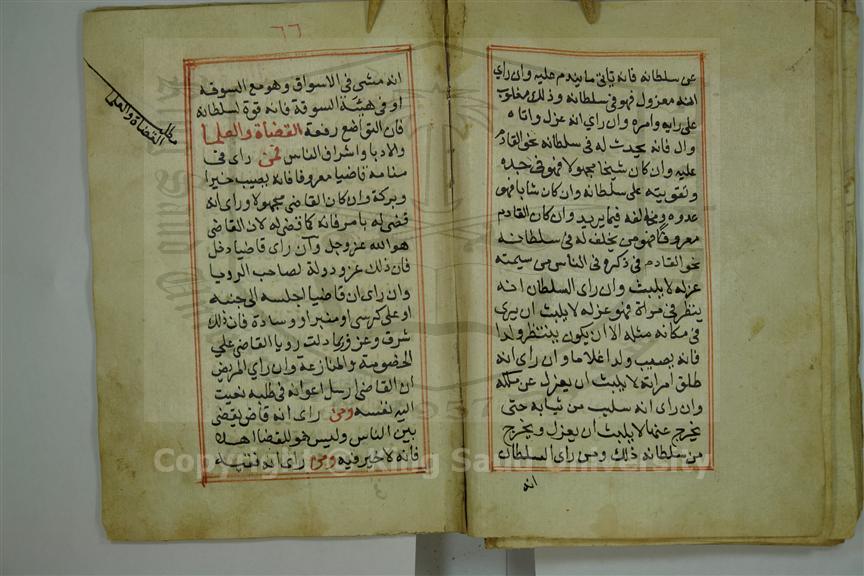 عن سلطانه فانه يأتي ما يندم عليه وان راي
انه معزول فهو في سلطانه وذلك مغلوب
على رايه وامره وان راي انه عزل واتاه
وال فانه يحدث له في سلطانه نحو القادم
عليه وان كان شيخا مجهولا فهو في جده
وتقويته على سلطانه وان كان شابا فهو
عدوه ومخالفه فيما يريد وان كان القادم
معروفا فهو من يخلف له في سلطانه
نحو القادم في ذكره في الناس من سيمته
عزله لا يلبث وان راي السلطان انه
ينظر في مراة فهو عزله لا يلبث ان يري
في مكانه مثله الا ان يكون ينتظر ولدا
فانه يصيب ولدا غلاما وان راي انه
طلق امراته لا يلبث ان يعزل عن ملكه
وان راي انه سلب من ثيابه حتى
يخرج عنها لا يلبث ان يعزل ويخرج
من سلطانه ذلك ومن راي السلطان
انه
٦٦
انه مشى في الاسواق وهو مع السوقة
او في هيئة السوقة فانه قوة لسلطانه
فان التواضع رفعة القضاة والعلما
والادبا واشراف الناس فمن راى في
منامه قاضيا معروفا فانه يصيب خيرا
وبركة وان كان القاضي مجهولا وراى انه
قضى له بامر فانه كما قضى له لان القاضي
هو الله عز وجل وان راى قاضيا دخل
فان ذلك عز ودولة لصاحب الرويا
وان راى ان قاضيا اجلسه الى جنبه
او على كرسى او منبر او وسادة فان ذلك
شرف وعز وربما دلت رويا القاضى على
الخصومة والمنازعة وان راي المريض
ان القاضى ارسل اعوانه في طلبه نعيت
اليه نفسه ومن راى انه قاض يقضى
بين الناس وليس هو للقضا اهلا
فانه لا خير فيه ومن راى انه فقيه
مطلب
القضاة والعلما
Copyright © King Saud University
1957